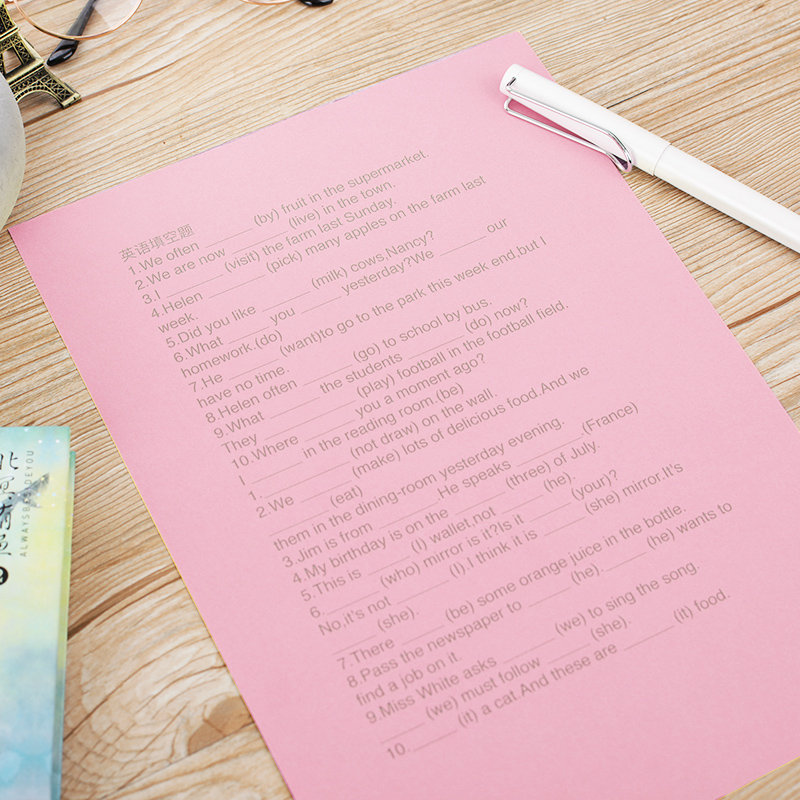 英语填空题
1.We often ______ (by) fruit in the supermarket.
2.We are now ______ (live) in the town.
3.I ______ (visit) the farm last Sunday.
4.Helen ______ (pick) many apples on the farm last
week.
5.Did you like ______ (milk) cows,Nancy?
6.What ______ you ______ yesterday?We ______ our
homework.(do)
7.He ______ (want)to go to the park this week end,but I
have no time.
8.Helen often ______ (go) to school by bus.
9.What ______ the students ______ (do) now?
They ____________ (play) football in the football field.
10.Where ______ you a moment ago?
I ______ in the reading room.(be)
1.____________ (not draw) on the wall.
2.We ______ (make) lots of delicious food.And we
______ (eat)
them in the dining-room yesterday evening.
3.Jim is from ______.He speaks ______.(France)
4.My birthday is on the ______ (three) of July.
5.This is ______ (I) wallet,not ______ (he).
6.______ (who) mirror is it?Is it ______ (your)?
No,it's not ______ (I).I think it is ______ (she) mirror.It's
______ (she).
7.There ______ (be) some orange juice in the bottle.
8.Pass the newspaper to ______ (he).______ (he) wants to
find a job on it.
9.Miss White asks ______ (we) to sing the song.
______ (we) must follow ______ (she).
10.______ (it) a cat.And these are ______ (it) food.
9